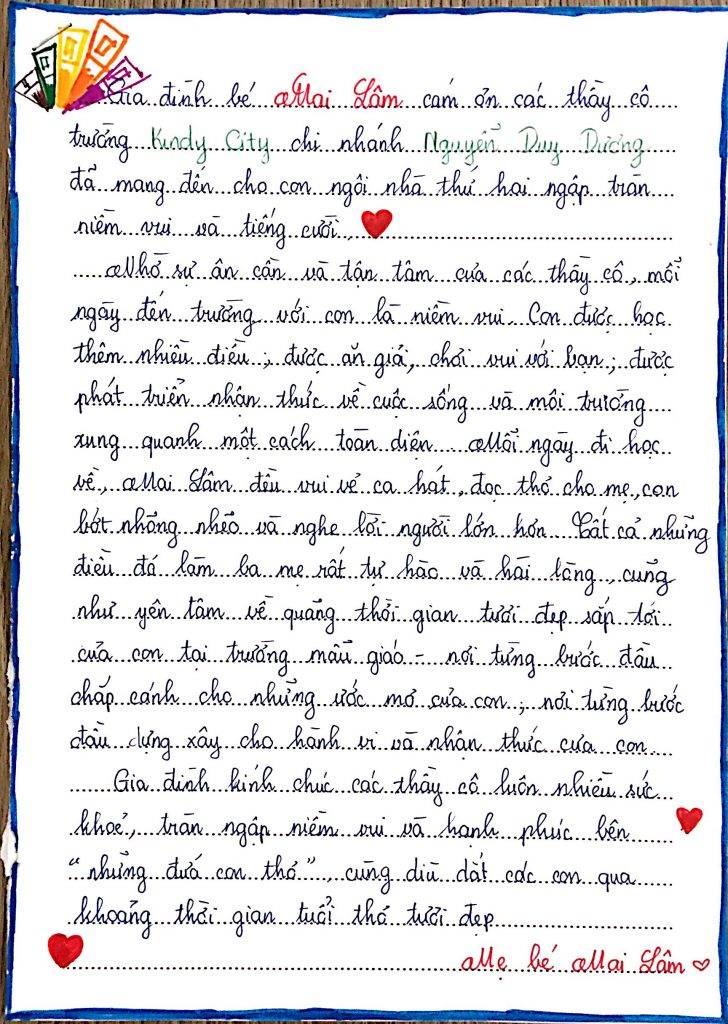 Gia đình bé Mai Lâm cám ơn các thầy cô
trường Kindy City chi nhánh Nguyễn Duy Dương
đã mang đến cho con ngôi nhà thứ hai ngập tràn
niềm vui và tiếng cười.
Nhờ sự ân cần và tận tâm của các thầy cô, mỗi
ngày đến trường với con là niềm vui. Con được học
thêm nhiều điều; được ăn giỏi, chơi vui với bạn; được
phát triển nhận thức về cuộc sống và môi trường
xung quanh một cách toàn diện. Mỗi ngày đi học
về, Mai Lâm đều vui vẻ ca hát, đọc thơ cho mẹ, con
bớt nhõng nhẽo và nghe lời người lớn hơn. Tất cả những
điều đó làm ba mẹ rất tự hào và hài lòng, cũng
như yên tâm về quãng thời gian tươi đẹp sắp tới
của con tại trường mẫu giáo - nơi từng bước đầu
chắp cánh cho những ước mơ của con; nơi từng bước
đầu dựng xây cho hành vi và nhận thức của con.
Gia đình kính chúc các thầy cô luôn nhiều sức
khoẻ, tràn ngập niềm vui và hạnh phúc bên
"những đứa con thơ", cùng dìu dắt các con qua
khoảng thời gian tuổi thơ tươi đẹp
Mẹ bé Mai Lâm